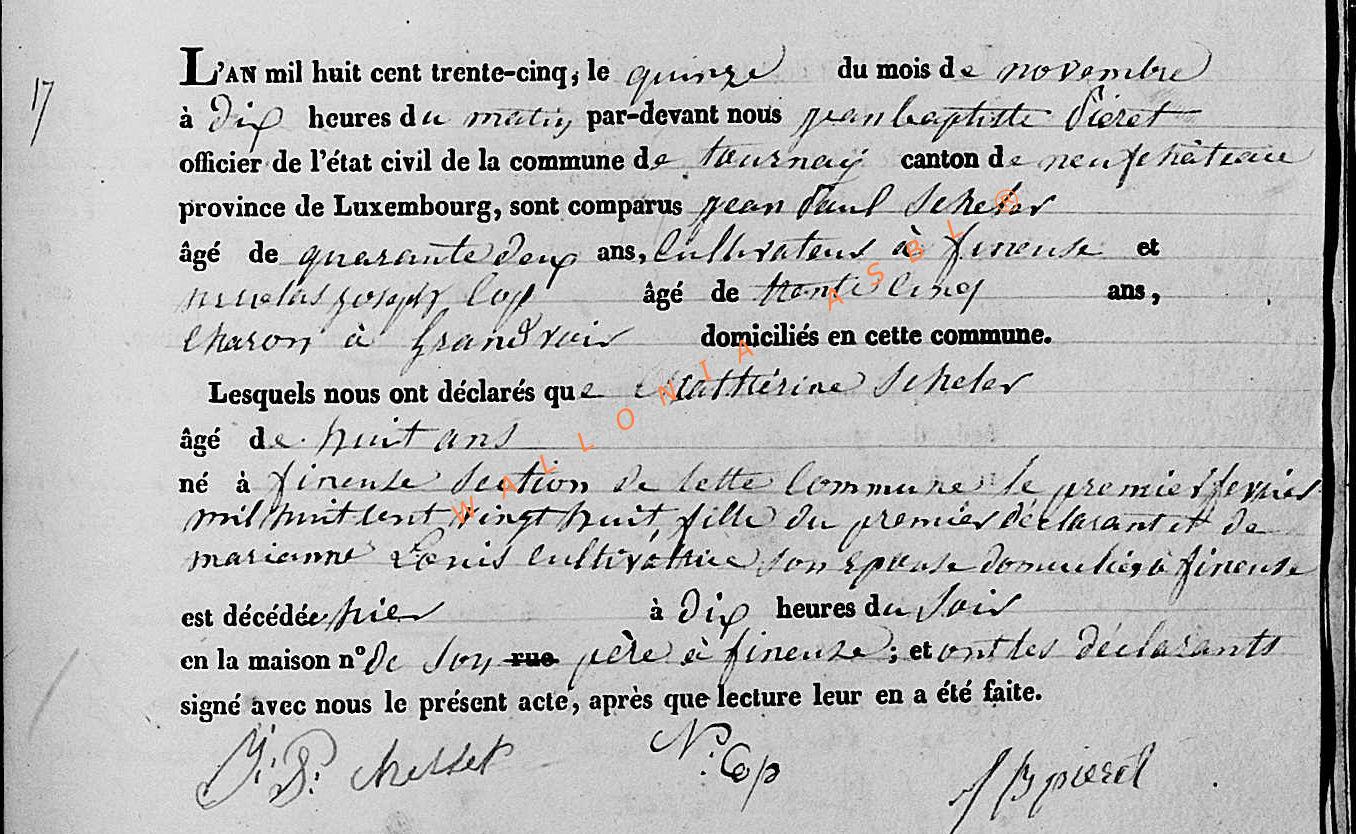 17
L'AN mil huit cent trente-cinq, le quinze du mois de novembre
à dix heures du matin par-devant nous jean baptiste Pieret
officier de l'état civil de la commune de tournay canton de neufchateau
province de Luxembourg, sont comparus jean Paul Scheler
âgé de quarante deux ans, Cultivateur à fineuse et
nicolas joseph Cop âgé de trente cinq ans,
Charon à Grandvoir domiciliés en cette commune.
Lesquels nous ont déclarés que Catthérine Scheler
âgé de huit ans
né à fineuse Section de cette Commune le premier fevrier
mil huit cent vingt huit fille du premier déclarant et de
marianne Louis Cultivatrice son epouse domiciliés à fineuse
est décédée hier à dix heures du Soir
en la maison n° de son rue père à fineuse; et ont les déclarants
signé avec nous le présent acte, après que lecture leur en a été faite.
N. Cop
J B pieret
WALLONIA ASBL ®